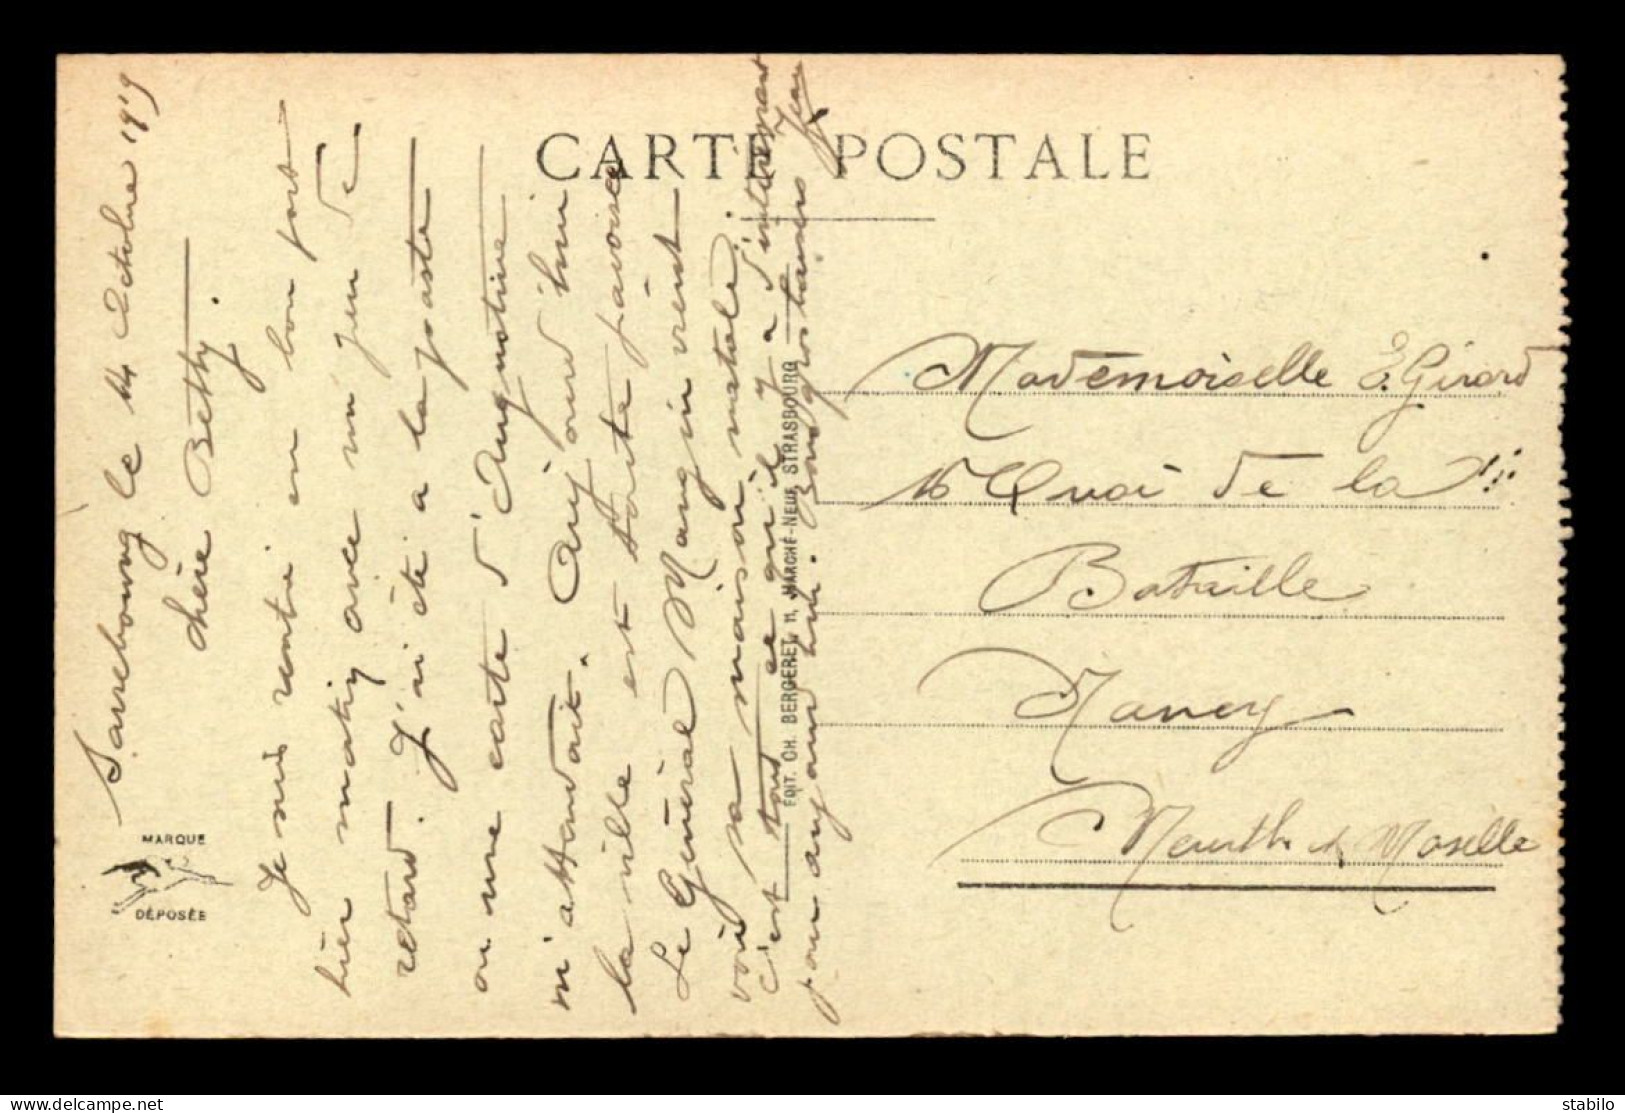 CARTE POSTALE
Sarrebourg le 14 Octobre 1919
Chère Betty.
Je suis rentré en bon port
hier matin avec un peu de
retard. J'ai été a la poste
ou une carte d'Augustine
m'attendait. Aujourd'hui
la ville est toute pavoisée
Le Général Mangin vient
voir sa maison natale.
C'est tout ce qu'il y a d'intéressant
pour aujourd'hui. Bons gros baisers
Jean
MARQUE
DÉPOSÉE
EDIT. CH. BERGERET, 11, MARCHÉ-NEUF, STRASBOURG
Mademoiselle E. Girard
16 Quai de la
Bataille
Nancy
Meurthe & Moselle
www.delcampe.net
stabilo